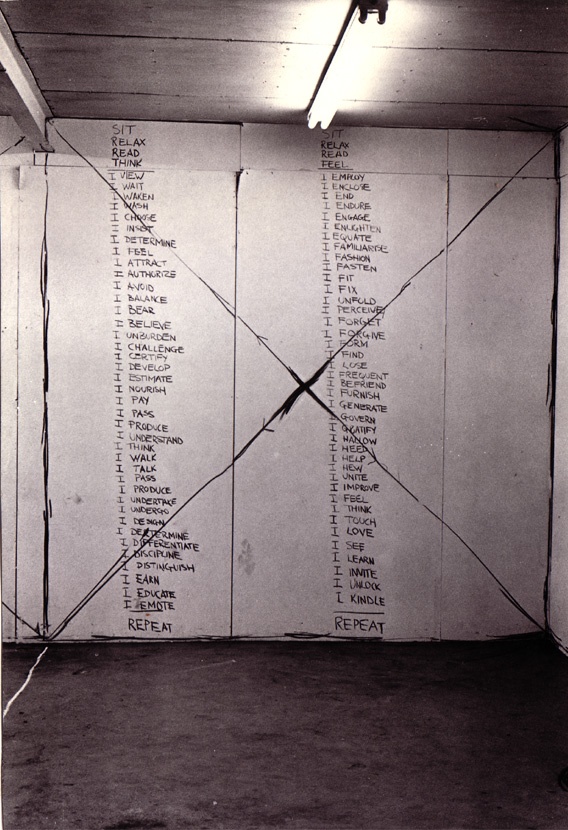 SIT
RELAX
READ
THINK
I VIEW
I WAIT
I WAKEN
I WASH
I CHOOSE
I INSET
I DETERMINE
I FEEL
I ATTRACT
I AUTHORIZE
I AVOID
I BALANCE
I BEAR
I BELIEVE
I UNBURDEN
I CHALLENGE
I CERTIFY
I DEVELOP
I ESTIMATE
I NOURISH
I PAY
I PASS
I PRODUCE
I UNDERSTAND
I THINK
I WALK
I TALK
I PASS
I PRODUCE
I UNDERTAKE
I UNDERGO
I DESIGN
I DEXTERMINE
I DIFFERENTIATE
I DISCIPLINE
I DISTINGUISH
I EARN
I EDUCATE
I EMOTE
REPEAT
SIT
RELAX
READ
FEEL
I EMPLOY
I ENCLOSE
I END
I ENDURE
I ENGAGE
I ENLIGHTEN
I EQUATE
I FAMILIARISE
I FASHION
I FASTEN
I FIT
I FIX
I UNFOLD
I PERCEIVE
I FORGET
I FORGIVE
I FORM
I FIND
I LOSE
I FREQUENT
I BEFRIEND
I FURNISH
I GENERATE
I GOVERN
I
I HALLOW
I HEED
I HELP
I HEW
I UNITE
I IMPROVE
I FEEL
I THINK
I TOUCH
I LOVE
I SEE
I LEARN
I INVITE
I UNLOCK
I KINDLE
REPEAT